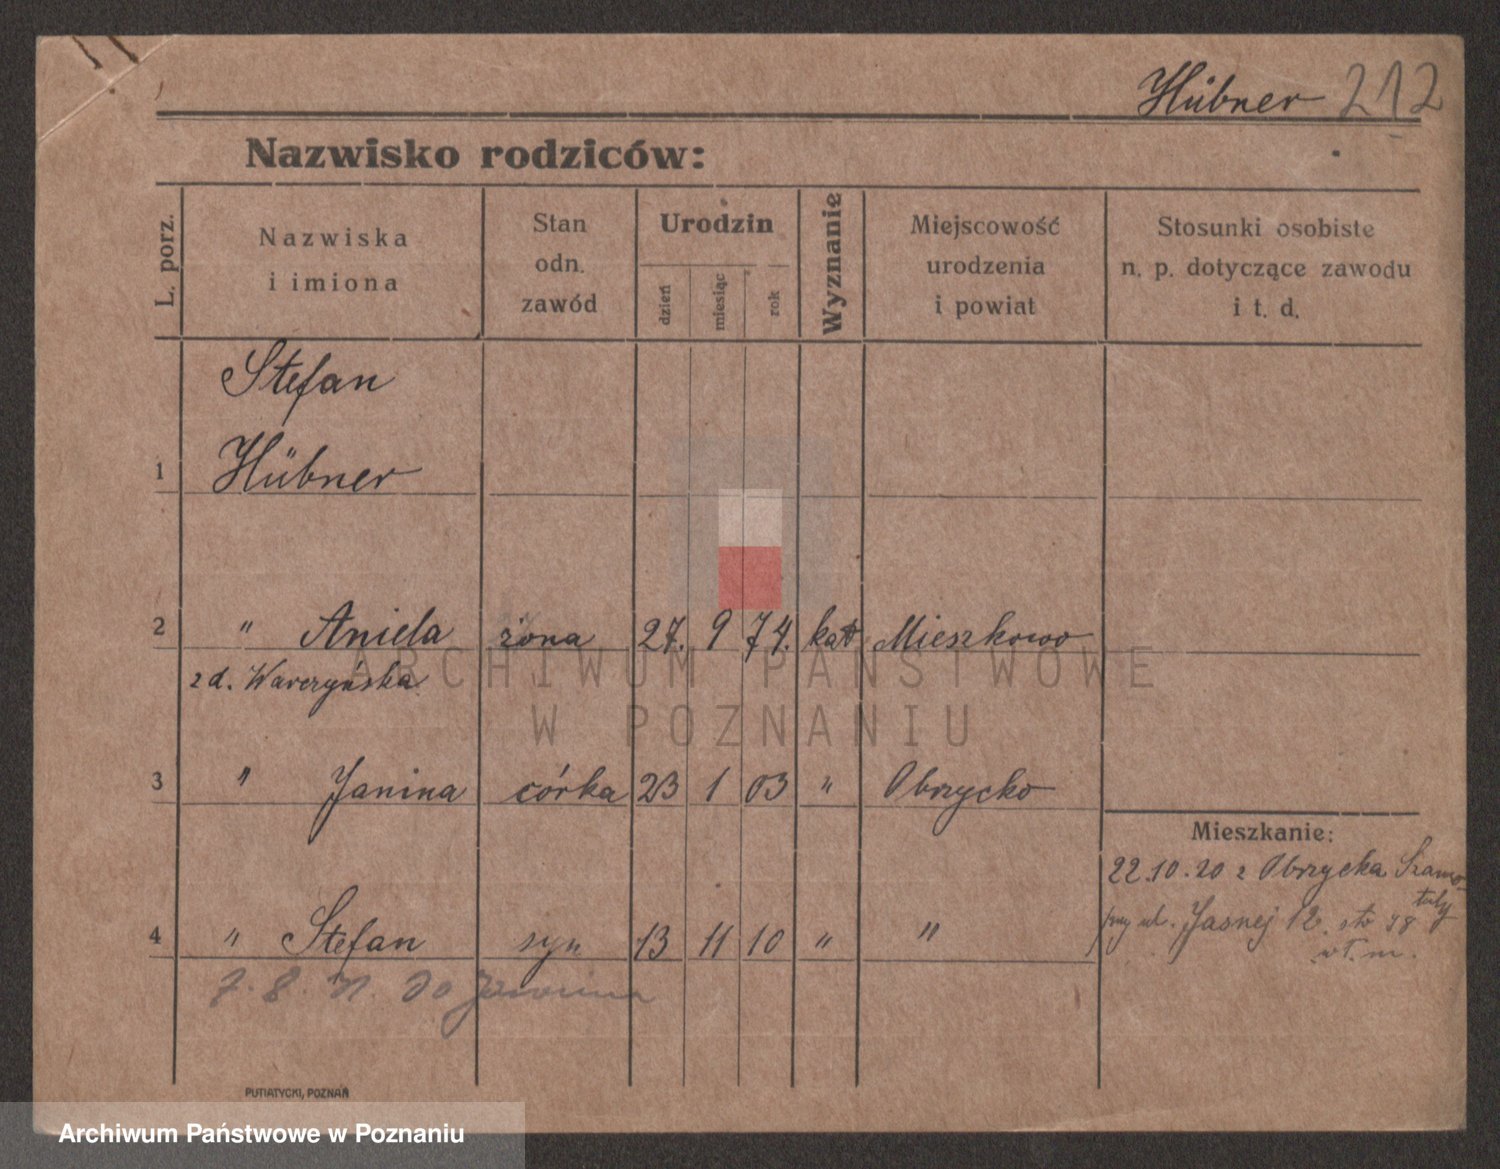 Hübner 212
Nazwisko rodziców:
L. porz.
Nazwiska
i imiona
Stan
odn.
zawód
Urodzin
dzień
miesiąc
rok
Wyznanie
Miejscowość
urodzenia
i powiat
Stosunki osobiste
n. p. dotyczące zawodu
i t. d.
Stefan
1 Hübner
2 " Aniela żona 27. 9 74. kat Mieszkowo
z d. Warczyńska
ARCHIWUM PAŃSTWOWE
W POZNANIU
3 " Janina córka 23 1 03 " Obrzycko
Mieszkanie:
22.10.20 z Obrzycka Szamo-
tuły
przy ul. Jasnej 12.
4 " Stefan syn 13 11 10 " "
7. 8. 21. do
PUTIATYCKI, POZNAŃ
Archiwum Państwowe w Poznaniu